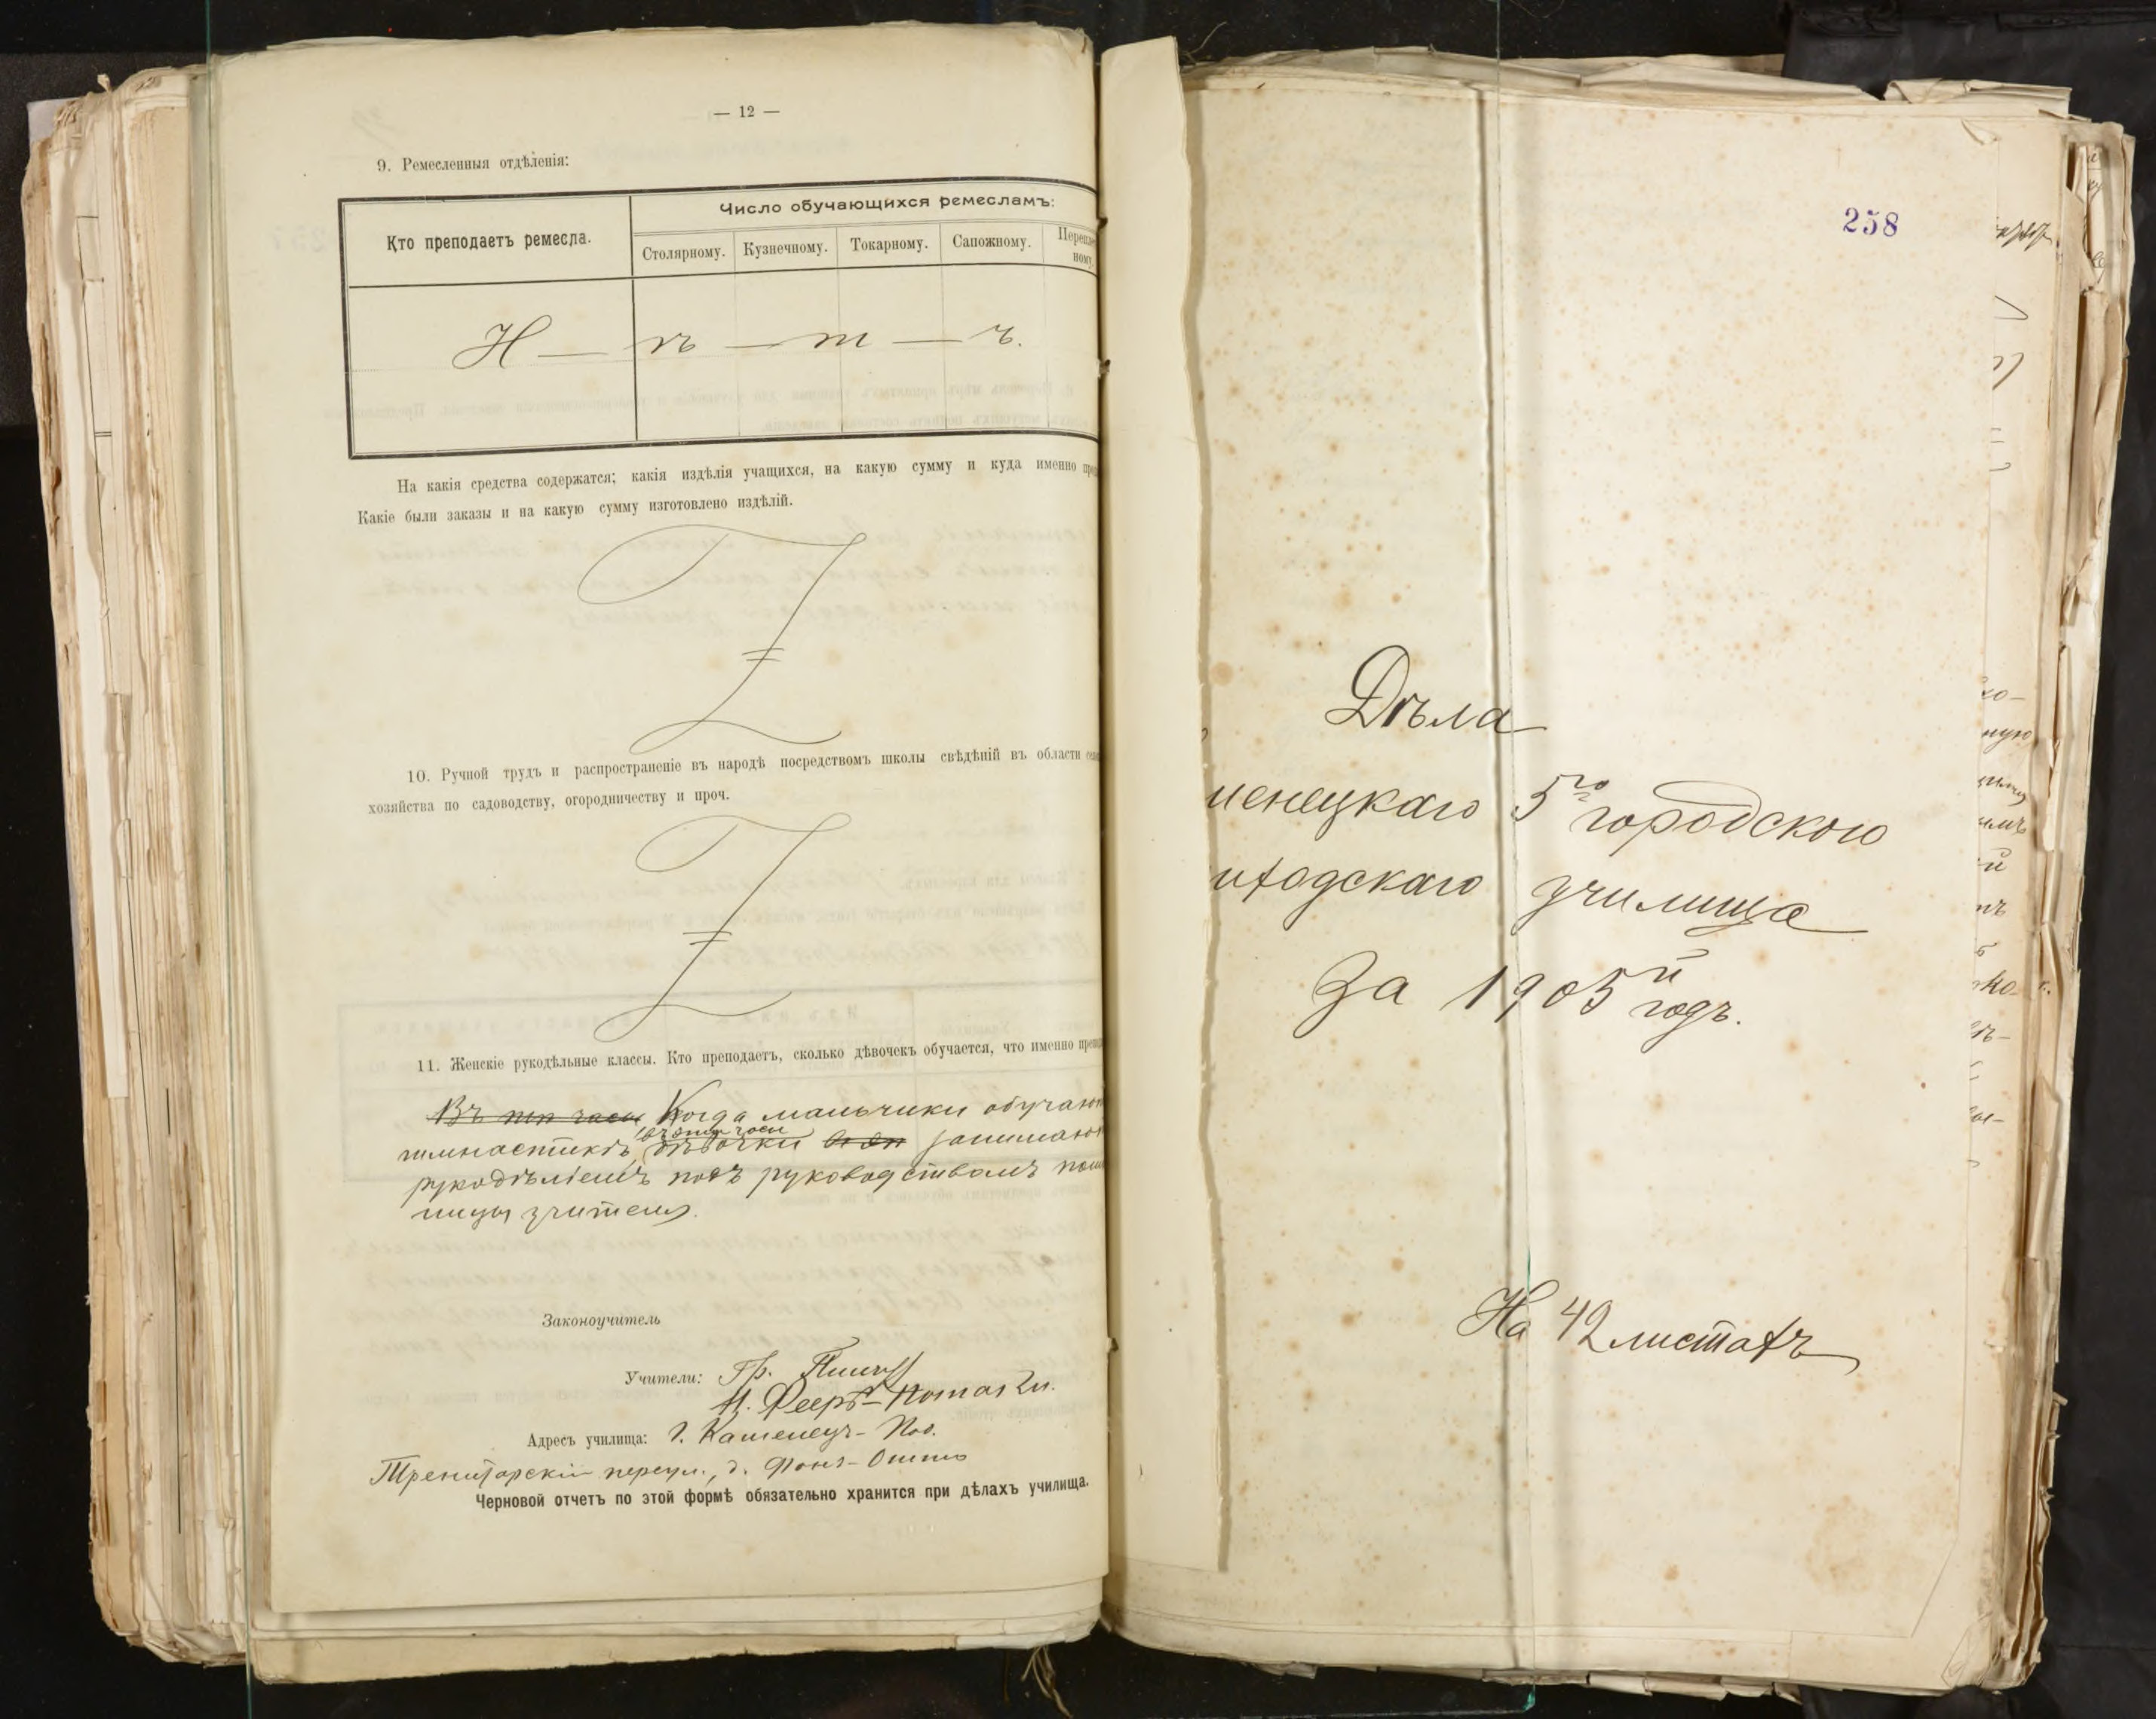 — 12 —
9. Ремесленныя отдѣленія:
Кто преподаетъ ремесла.
Число обучающихся ремесламъ:
Столярному. Кузнечному. Токарному. Сапожному.
Н — ѣ — т — ъ.
На какія средства содержатся; какія издѣлія учащихся, на какую сумму и куда именно
Какіе были заказы и на какую сумму изготовлено издѣлій.
10. Ручной трудъ и распространеніе въ народѣ посредствомъ школы свѣдѣній въ области
хозяйства по садоводству, огородничеству и проч.
11. Женскіе рукодѣльные классы. Кто преподаетъ, сколько дѣвочекъ обучается, что именно
Когда мальчики обучают
въ эти часы
гимнастикѣ, дѣвочки занимают
рукодѣліемъ подъ руководствомъ пом
ницы учителя.
Законоучитель
Учители: Гр.
Адресъ училища: г. Каменецъ-Под.
переул., д. Фонъ-Отто
Черновой отчетъ по этой формѣ обязательно хранится при дѣлахъ училища.
258
Дѣла
менецкаго 5го городского
иходскаго училища
За 1905й годъ.
На 42 листахъ